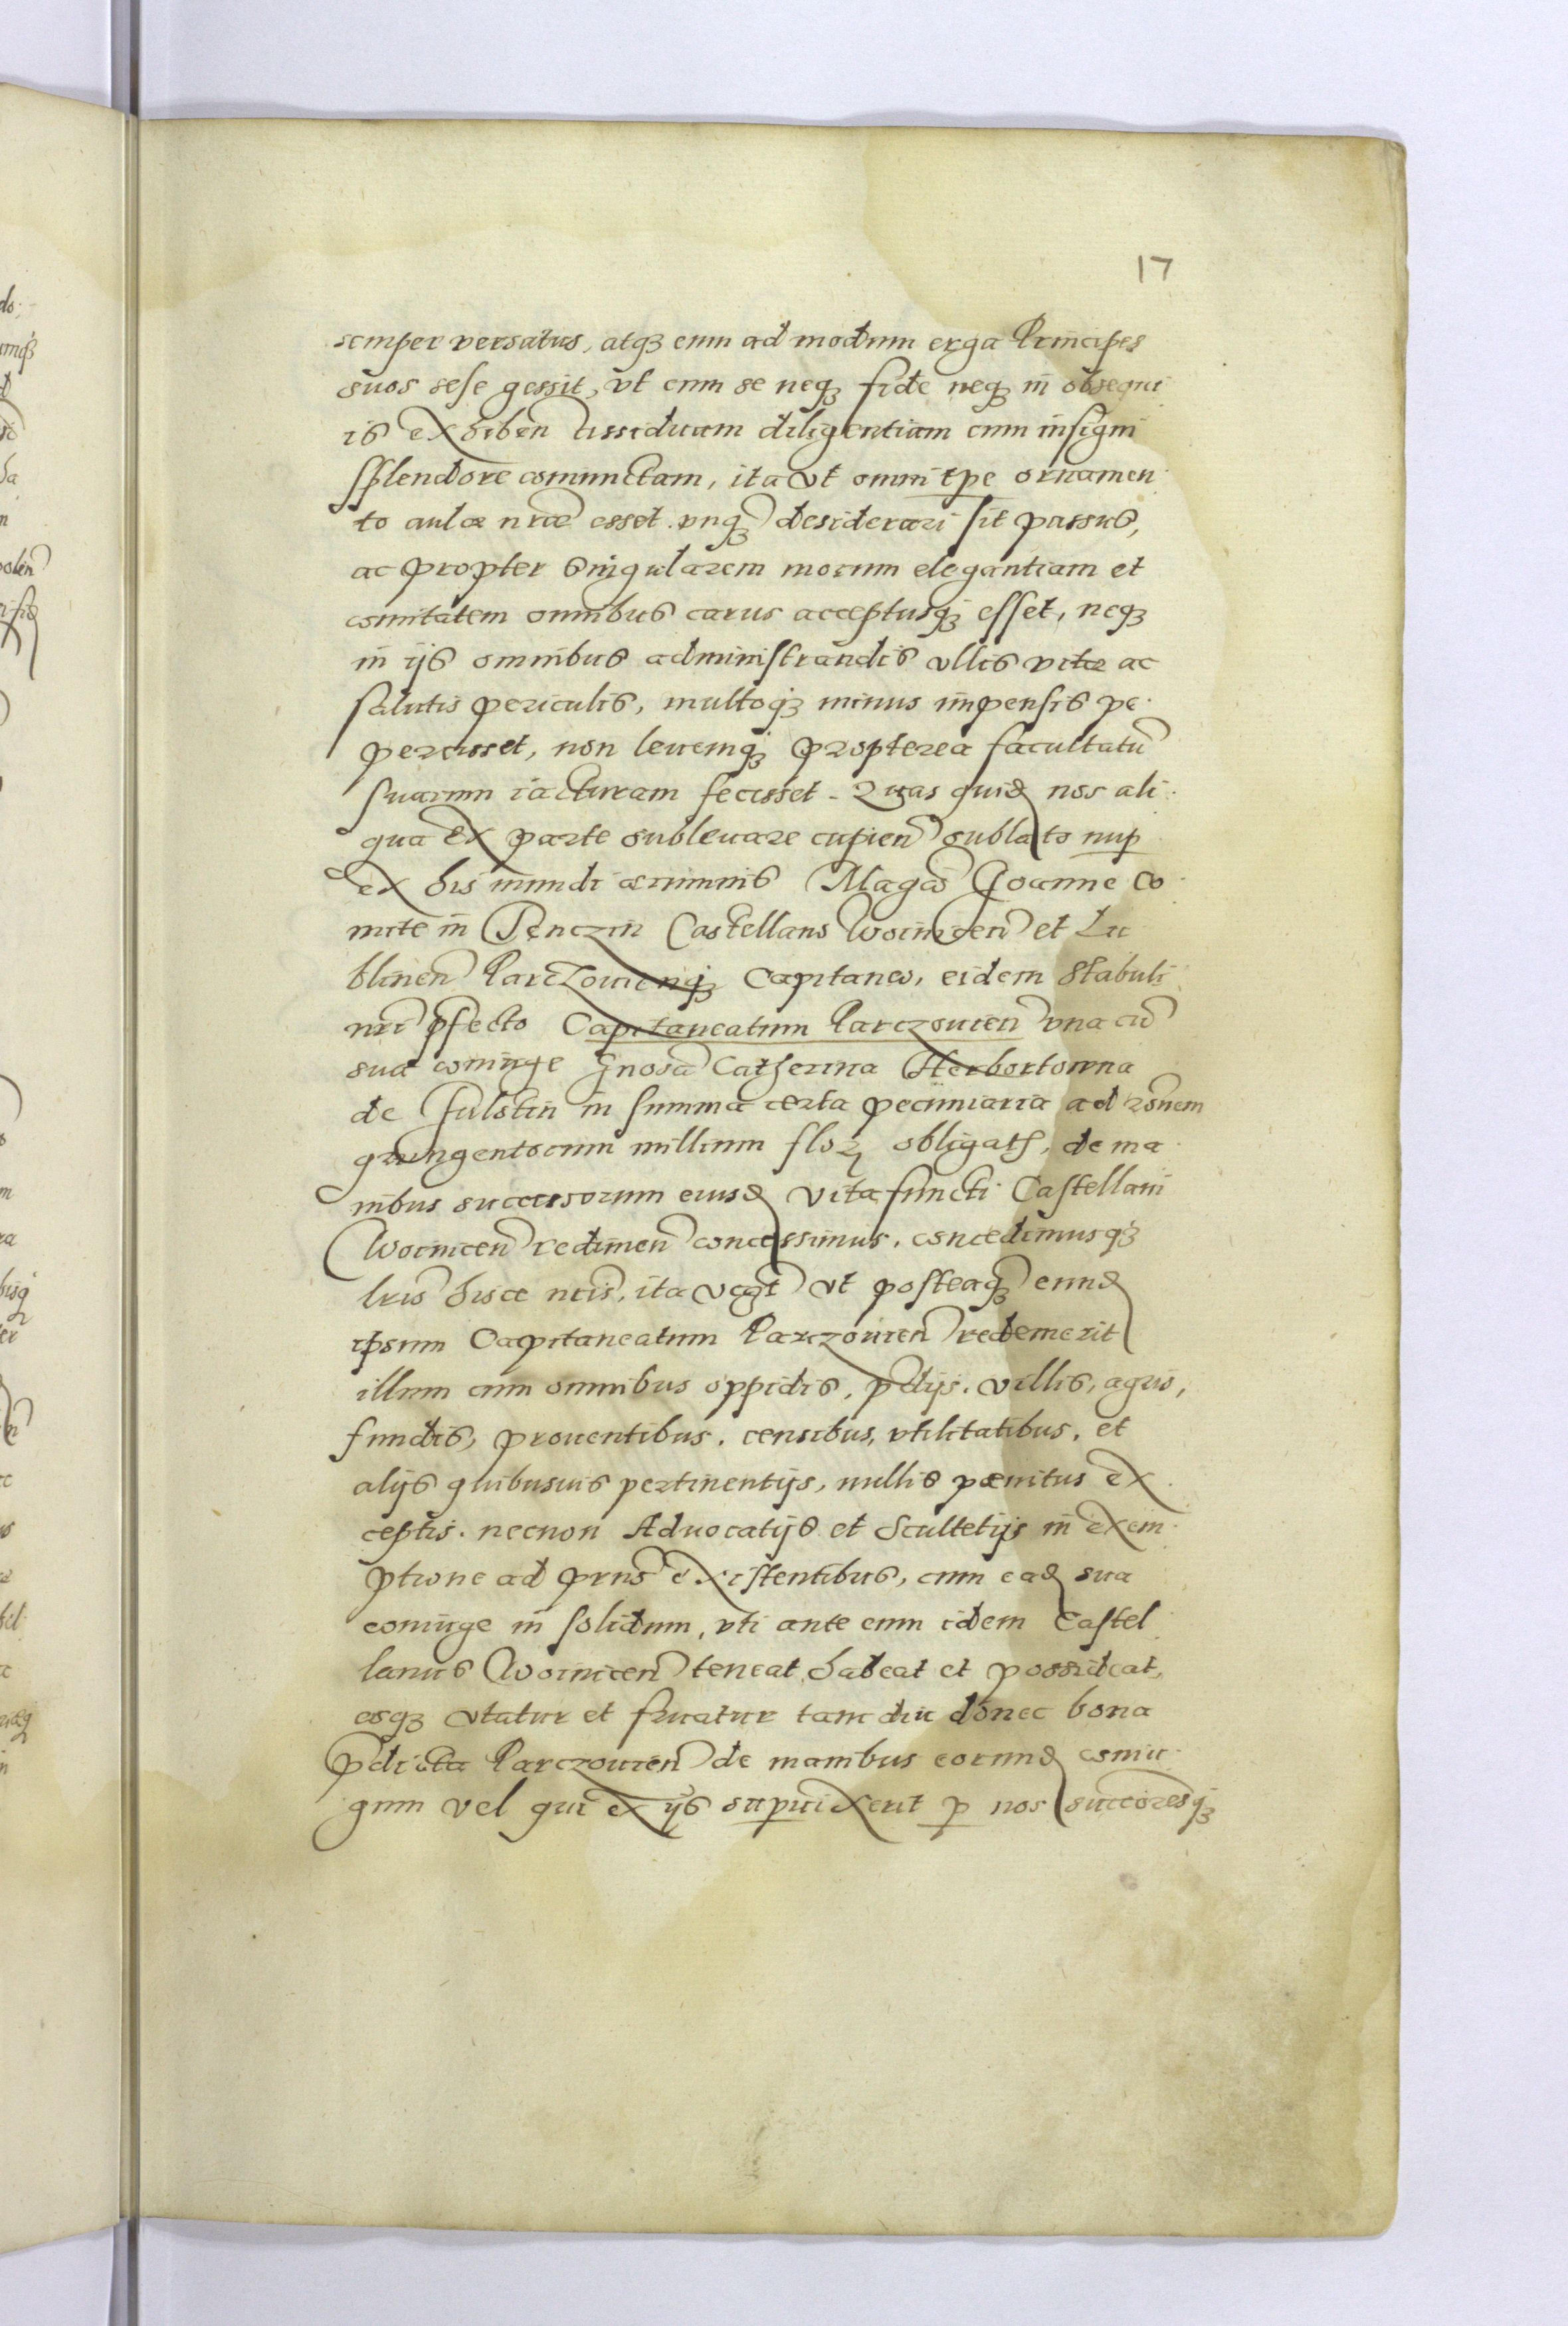 17
semper versatus, atqꝫ eum ad modum erga Principes
suos sese gessit, vt cum se neqꝫ fide neqꝫ in obsequi
is exhiben̄ assiduam diligentiam cum insigni
splendore coniunctam, ita vt omni tp̄e ornamen
to aulæ nr̄æ esset vnqꝫ desiderari sit passus,
ac propter singularem morum elegantiam et
comitatem omnibus carus acceptusqꝫ esset, neqꝫ
in ijs omnibus administrandis vllis vitæ ac
salutis periculis, multoqꝫ minus impensis pe
percisset, non leuemqꝫ propterea facultatū
suarum iacturam fecisset. Quas quidꝫ nos ali
qua ex parte subleuare cupien̄ sublato nup̄
ex his mundi ærumnis Magco Joanne Co
mite in Tenczin Castellano Woinicen̄ et Lu
blinen̄ Parczouienqꝫ Capitaneo, eidem Stabuli
nr̄i p̄fecto Capitaneatum Parczouien̄ vna cū
sua coniuge Gnosa Catherina Herbortowna
de Fulstin in summa certa pecuniaria ad rōnem
quingentorum millium floꝝ obligatꝭ, de ma
nibus successorum eiusdꝫ vita functi Castellani
Woinicen̄ redimen̄ concessimus, concedimusqꝫ
lr̄is hisce nr̄is, ita vcꝫt vt posteaqꝫ eundꝫ
ipsum Capitaneatum Parczouien̄ redemerit
illum cum omnibus oppidis, p̄dijs, villis, agris,
fundis, prouentibus, censibus, vtilitatibus, et
alijs quibusuis pertinentijs, nullis pænitus ex
ceptis, necnon Aduocatijs et Scultetijs in exem
ptione ad prn̄s existentibus, cum eadꝫ sua
coniuge in solidum, vti ante eum idem Castel
lanus Woinicen̄ teneat, habeat et possideat,
eoqꝫ vtatur et fruatur tamdiu donec bona
p̄dicta Parczouien̄ de manibus eorundꝫ coniu
gum vel qui ex ijs supuixerit p̱ nos succōresqꝫ